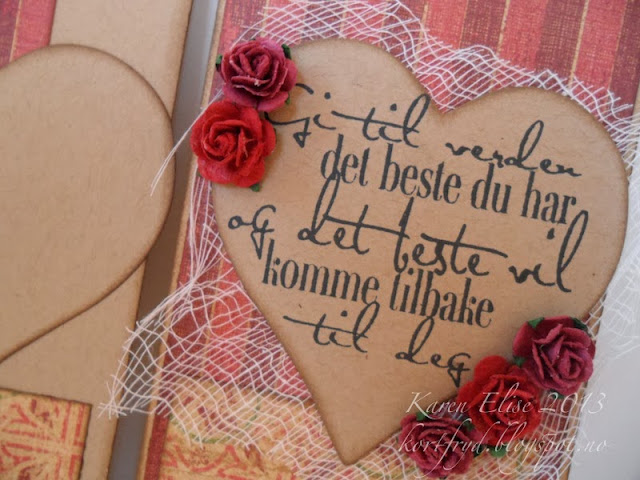 Gi til verden
det beste du har
og det beste vil
komme tilbake
til deg
Karen Elise 2013
kortfryd.blogspot.no